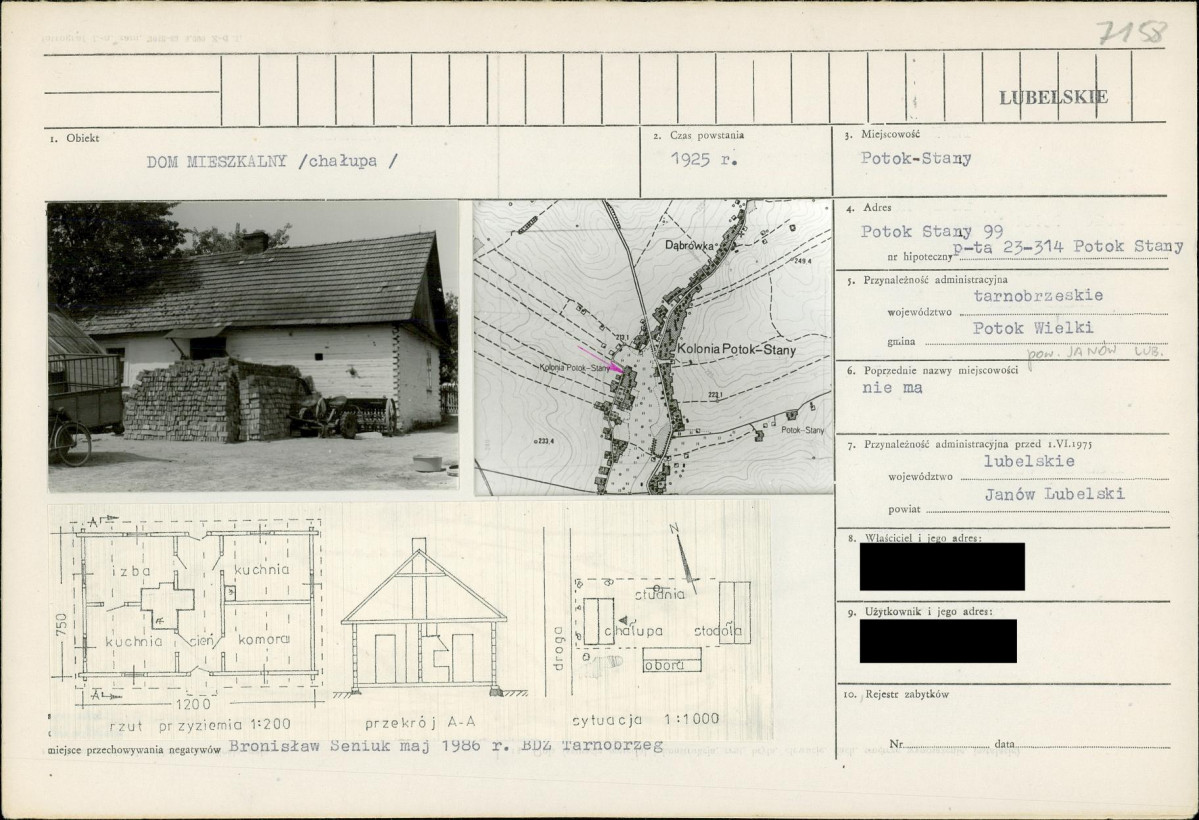 7158
LUBELSKIE
1. Obiekt
DOM MIESZKALNY /chałupa /
2. Czas powstania
1925 r.
3. Miejscowość
Potok-Stany
4. Adres
Potok Stany 99
nr hipoteczny p-ta 23-314 Potok Stany
5. Przynależność administracyjna
tarnobrzeskie
województwo
Potok Wielki
gmina
pow. JANÓW LUB.
6. Poprzednie nazwy miejscowości
nie ma
7. Przynależność administracyjna przed 1.VI.1975
lubelskie
województwo
Janów Lubelski
powiat
8. Właściciel i jego adres:
9. Użytkownik i jego adres:
10. Rejestr zabytków
Nr data
Dąbrówka
249.4
212.1
Kolonia Potok-Stany
Kolonia Potok-Stany
223.1
Potok-Stany
233.4
A
izba
kuchnia
750
kuchnia
sień
komora
A
1200
rzut przyziemia 1:200
przekrój A-A
N
studnia
chałupa
stodoła
droga
obora
sytuacja 1:1000
miejsce przechowywania negatywów Bronisław Seniuk maj 1986 r. BDZ Tarnobrzeg